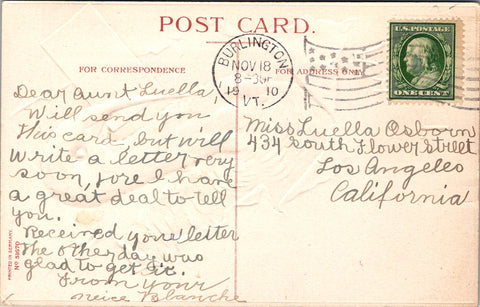 POST CARD.
FOR CORRESPONDENCE
FOR ADDRESS ONLY
BURLINGTON
NOV 18
19 10
VT.
U.S. POSTAGE
ONE CENT
Dear Aunt Luella
Will send you
this card, but will
write a letter very
soon, for I have
a great deal to tell
you.
Received your letter
the other day was
glad to get it.
From your
neice Blanche
Miss Luella Osborn
434 South Flower Street
Los Angeles
California
PRINTED IN GERMANY